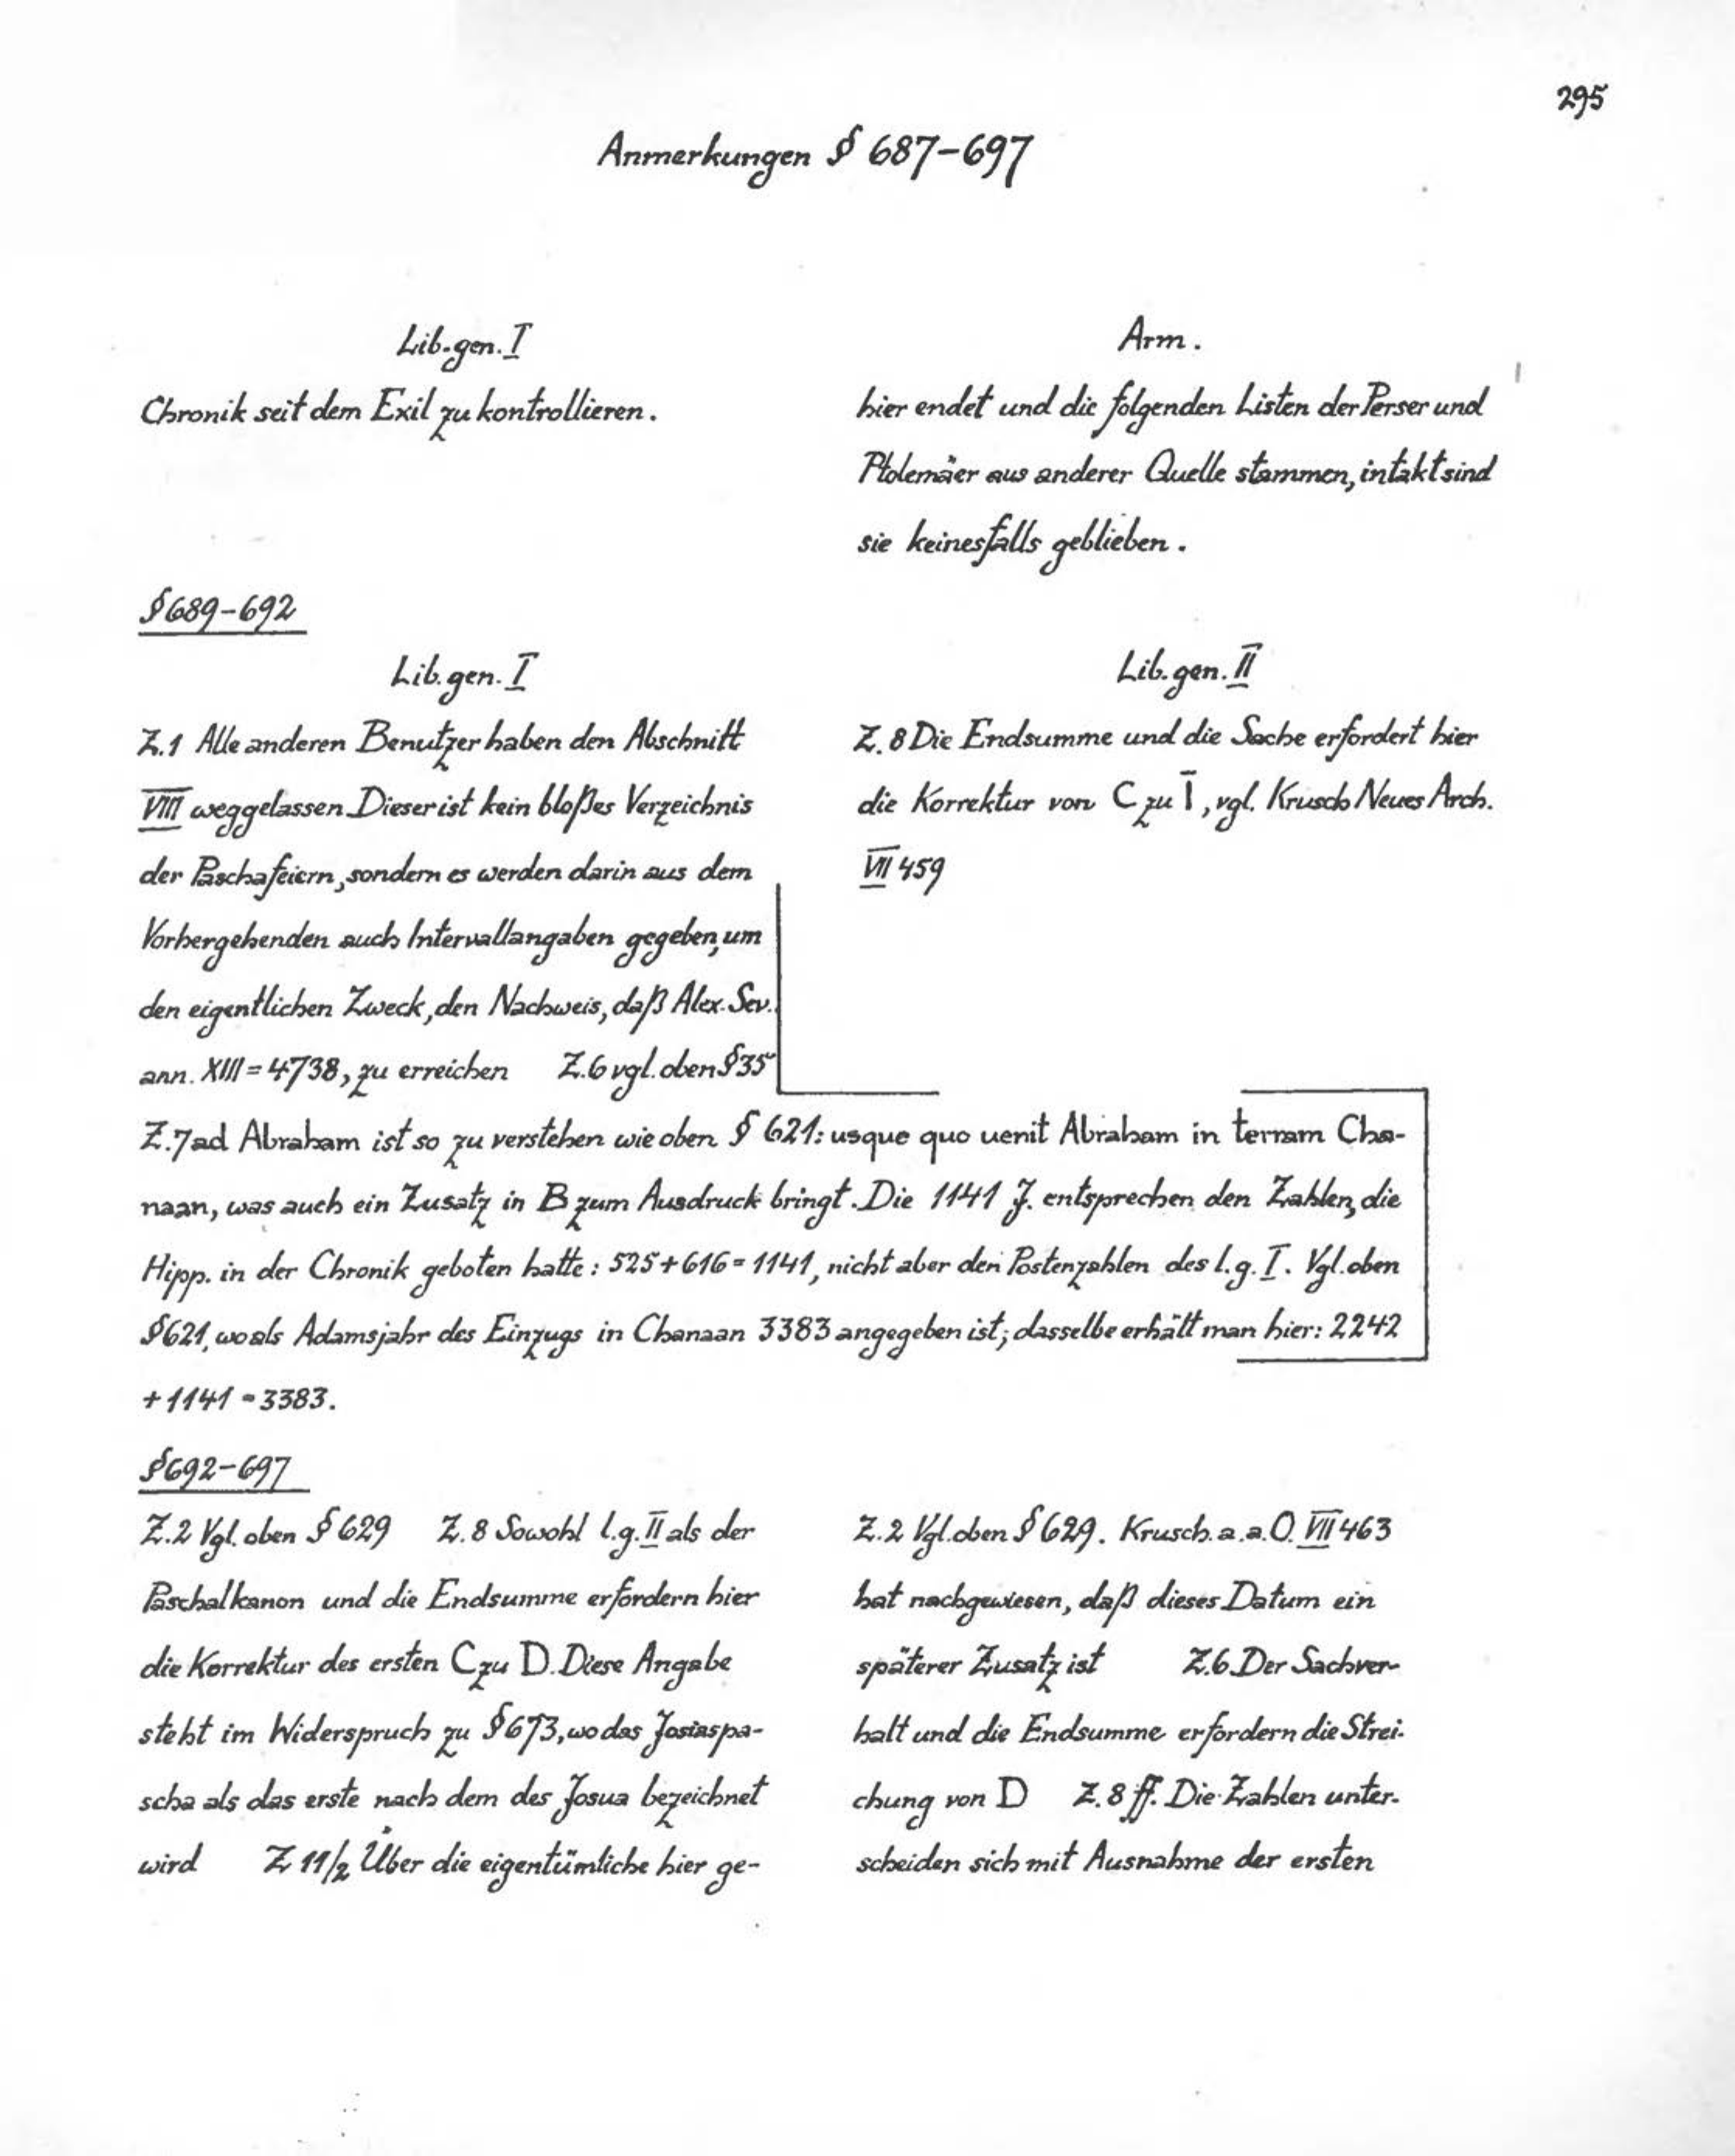 295
Anmerkungen § 687-697
Lib.gen. I
Chronik seit dem Exil zu kontrollieren.
Arm.
hier endet und die folgenden Listen der Perser und
Ptolemäer aus anderer Quelle stammen, intakt sind
sie keinesfalls geblieben.
§ 689-692
Lib.gen. I
Z.1 Alle anderen Benutzer haben den Abschnitt
VIII weggelassen. Dieser ist kein bloßes Verzeichnis
der Paschafeiern, sondern es werden darin aus dem
Vorhergehenden auch Intervallangaben gegeben, um
den eigentlichen Zweck, den Nachweis, daß Alex. Sev.
ann. XIII = 4738, zu erreichen Z.6 vgl. oben § 35
Lib.gen. II
Z.8 Die Endsumme und die Sache erfordert hier
die Korrektur von C zu Ī, vgl. Krusch Neues Arch.
VII 459
Z.7 ad Abraham ist so zu verstehen wie oben § 621: usque quo uenit Abraham in terram Cha-
naan, was auch ein Zusatz in B zum Ausdruck bringt. Die 1141 J. entsprechen den Zahlen, die
Hipp. in der Chronik geboten hatte: 525+616=1141, nicht aber den Postenzahlen des l.g. I. Vgl. oben
§ 621, wo als Adamsjahr des Einzugs in Chanaan 3383 angegeben ist; dasselbe erhält man hier: 2242
+1141=3383.
§ 692-697
Z.2 Vgl. oben § 629 Z.8 Sowohl l.g. II als der
Paschalkanon und die Endsumme erfordern hier
die Korrektur des ersten C zu D. Diese Angabe
steht im Widerspruch zu § 673, wo das Josiaspa-
scha als das erste nach dem des Josua bezeichnet
wird Z 11/2 Über die eigentümliche hier ge-
Z.2 Vgl. oben § 629. Krusch. a.a.O. VII 463
hat nachgewiesen, daß dieses Datum ein
späterer Zusatz ist Z.6 Der Sachver-
halt und die Endsumme erfordern die Strei-
chung von D Z.8 ff. Die Zahlen unter-
scheiden sich mit Ausnahme der ersten